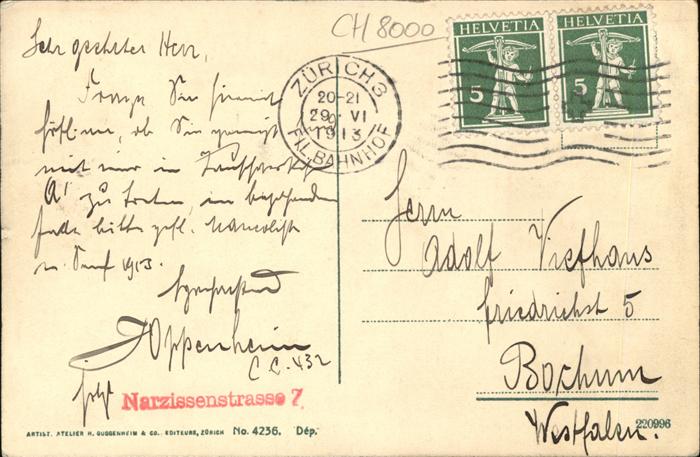 CH 8000
HELVETIA HELVETIA
5 5
ZÜRICH 3
20-21
29. VI
1913
FIL. BAHNHOF
Sehr geehrter Herr,
Frage Sie hiermit
höfl. an, ob Sie geneigt
mit mir in Tauschverkehr
zu treten, im bejahenden
Falle bitte gefl.
1913.
Hochachtend
J Oppenheim
C.C. 432
jetzt
Narzissenstrasse 7.
Herrn
Adolf Viefhaus
Friedrichst 5
Bochum
Westfalen.
220996
ARTIST. ATELIER H. GUGGENHEIM & CO., EDITEURS, ZÜRICH No. 4236. Dép.